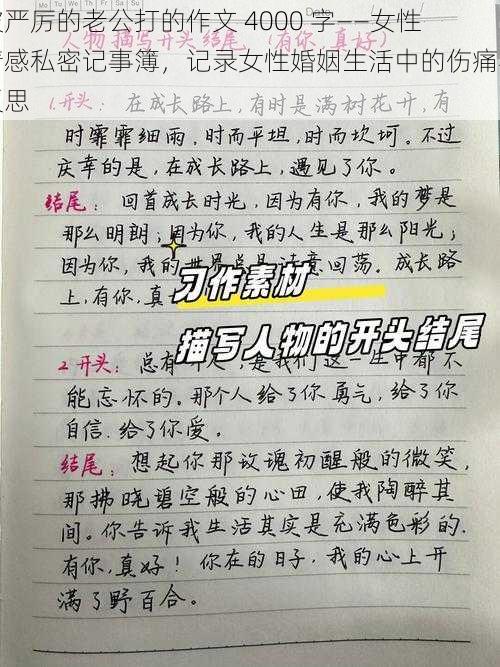 严厉的老公打的作文 4000 字——女性
感私密记事簿，记录女性婚姻生活中的伤痛
思
人物描写开头结尾（有你,真好）
1.开头：在成长路上,有时是满树花开,有
时霏霏细雨,时而平坦,时而坎坷。不过
庆幸的是,在成长路上,遇见了你。
结尾：回首成长时光,因为有你,我的梦是
那么明朗;因为你,我的人生是那么阳光;
因为你,我的世界总是诗意回荡。成长路
上,有你,真
习作素材
描写人物的开头结尾
2开头：总有一个人,是我们这一生中都不
能忘怀的。那个人给了你勇气,给了你
自信.给了你爱。
结尾：想起你那玫瑰初醒般的微笑,
那拂晓碧空般的心田,使我陶醉其
间。你告诉我生活其实是充满色彩的.
有你,真好！你在的日子,我的心上开
满了野百合。